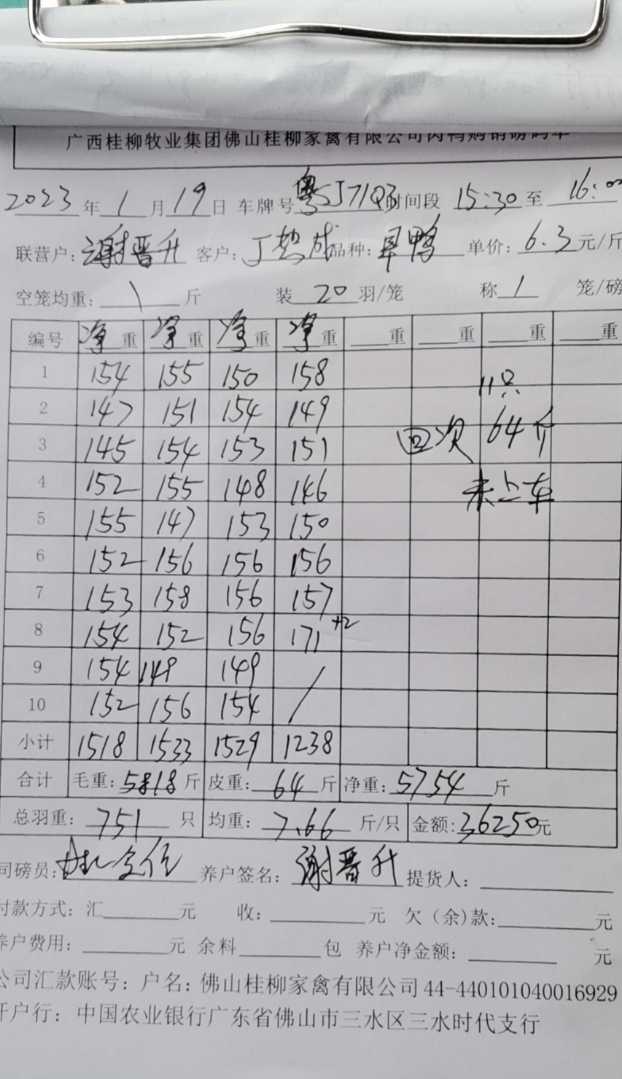 广西桂柳牧业集团佛山桂柳家禽有限公司肉鸭购销磅码单
2023年1月19日 车牌号粤SJ71Q3时间段15:30至16:00
联营户:谢晋升 客户:丁 成品种:旱鸭 单价:6.3元/斤
空笼均重:\斤 装20羽/笼 称1笼/磅
编号 净重 净重 净重 净重 重 重 重 重
1 154 155 150 158 11只
2 147 151 154 149 回次 64斤
3 145 154 153 151
4 152 155 148 146 未上车
5 155 147 153 150
6 152 156 156 156
7 153 158 156 157
8 154 152 156 171+2
9 154 149 149 /
10 152 156 154
小计 1518 1533 1529 1238
合计 毛重:5818斤 皮重:64斤 净重:5754斤
总羽重:751只 均重:7.66斤/只 金额:36250元
司磅员: 养户签名:谢晋升 提货人:
付款方式:汇 元 收: 元 欠(余)款: 元
养户费用: 元 余料 包 养户净金额: 元
公司汇款账号:户名:佛山桂柳家禽有限公司44-440101040016929
开户行:中国农业银行广东省佛山市三水区三水时代支行